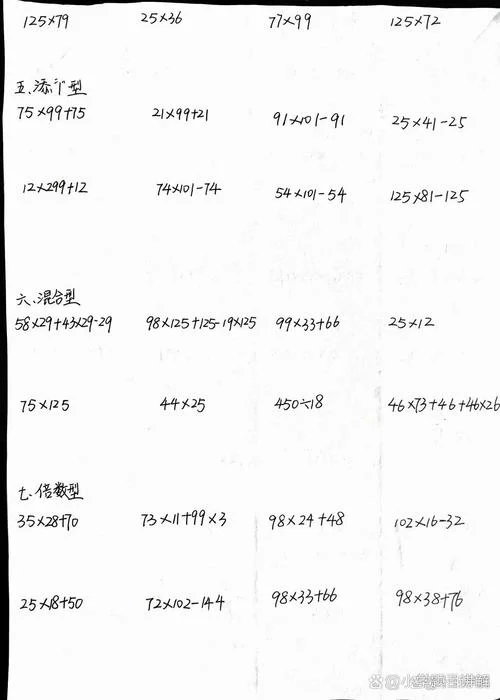 125×79 25×36 77×99 125×72
五、添"1"型
75×99+75 21×99+21 91×101-91 25×41-25
12×299+12 74×101-74 54×101-54 125×81-125
六、混合型
58×29+43×29-29 98×125+125-19×125 99×33+66 25×12
75×125 44×25 450÷18 46×73+46+46×26
七、倍数型
35×28+70 73×11+99×3 98×24+48 102×16-32
25×18+50 72×102-144 98×33+66 98×38+76